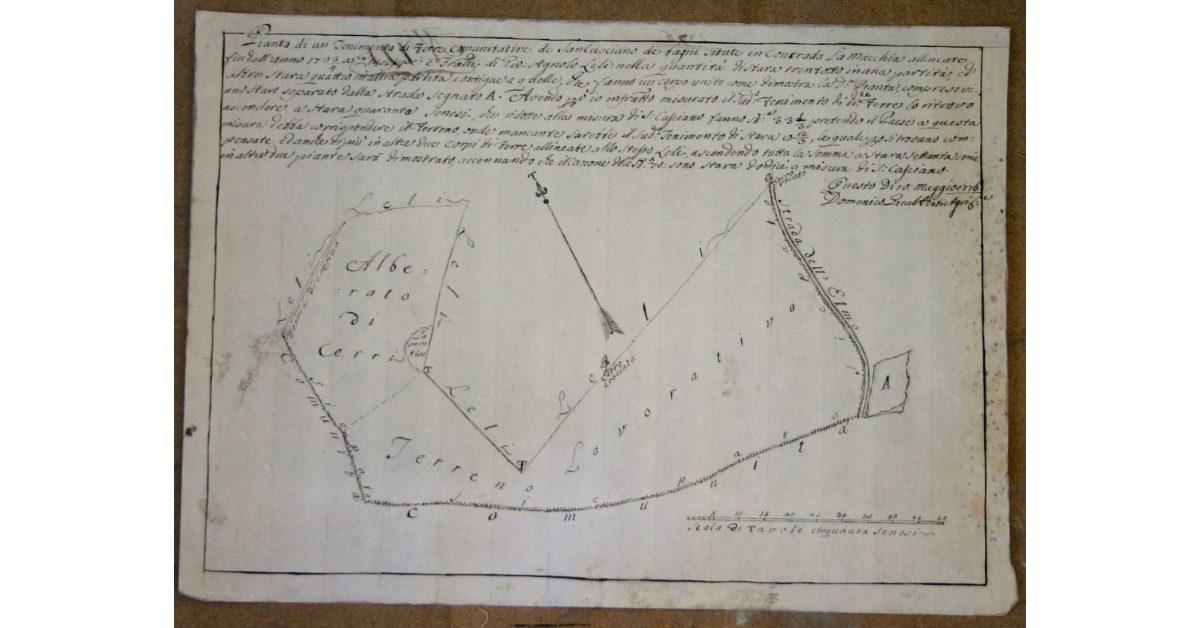 Pianta di un Tenimento di Terre Comunitative di San Casciano de Bagni situate in Contrada La Macchia allineate
fin dall'anno 17 a Giuseppe e Fratelli di Pio Agnolo Leli nella quantità di Stara trentotto in una partita, ed
altre Stara quattro in altra partita contigua a quelle, che fanno un corpo unito come dimostra la Pianta, compresovi
uno Staro separato dalla Strada segnato A. Avendo io infratto misurato il Sud.o Tenimento di d.e Terre lo ritrovo
ascendere a Stara quaranta Senesi, che ridotte alla misura di S. Casciano fanno St. 33 1/3 pretendo il Paese a questa
misura debba corrispondere il Terreno, onde mancante sarebbe il Sud.o Tenimento di Stara le quali si trovano com-
pensate, ed anche di più in altre due Corpi di Terre allineate allo Stesso Leli, ascendendo tutta la Somma a Stara Settanta come
in altre due piante sarà dimostrato accennando che il canone delle St. 70 sono Stara dodici a misura di S. Casciano.
Questo Dì 10 Maggio
Domenico
Crociato
Leli
Strada dell'Elmo
Leli
Termina
Albe=
=rato
di
Cerri
Leli
Leli
Cerro
Crociato
Lavorativo
A
Leli
Comunità
Terreno
Comunità
5 10 15 20 25 30 35 40 45 50
Scala di Tavole cinquanta Senesi